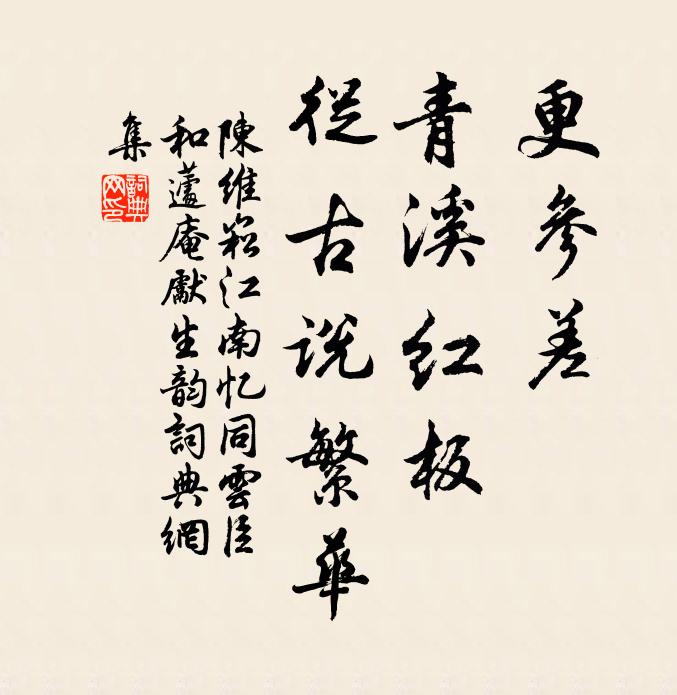 更參差
青溪紅板
從古說繁華
陳維崧江南忆同雲臣
和蘧庵獻生韵詞典網
集
詞典網印